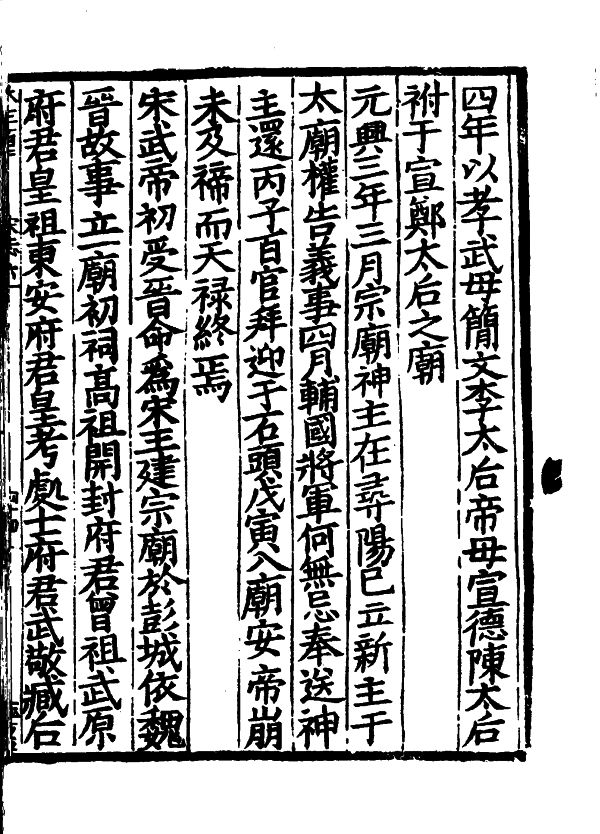 四年以孝武母簡文李太后帝母宣德陳太后
祔于宣鄭太后之廟
元興三年三月宗廟神主在尋陽已立新主于
太廟權告義事四月輔國將軍何無忌奉送神
主還丙子百官拜迎于石頭戊寅入廟安帝崩
未及禘而天禄終焉
宋武帝初受晉命爲宋王建宗廟於彭城依魏
晉故事立一廟初祠高祖開封府君曾祖武原
府君皇祖東安府君皇考處士府君武敬臧后